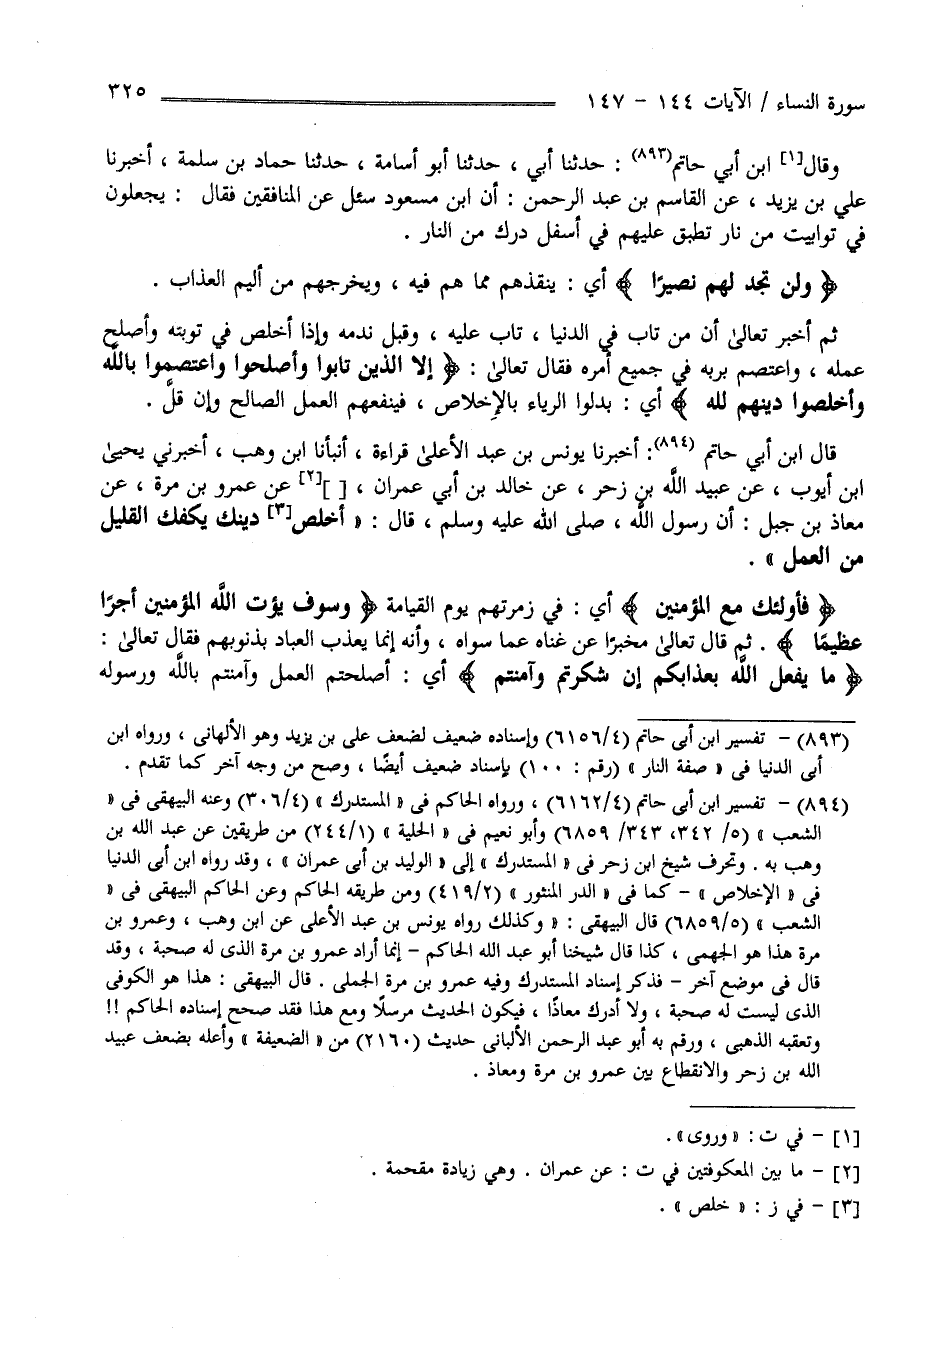 سورة النساء / الآيات ١٤٤ - ١٤٧ ٣٢٥
وقال[١] ابن أبي حاتم(٨٩٣) : حدثنا أبي ، حدثنا أبو أسامة ، حدثنا حماد بن سلمة ، أخبرنا
علي بن يزيد ، عن القاسم بن عبد الرحمن : أن ابن مسعود سئل عن المنافقين فقال : يجعلون
في توابيت من نار تطبق عليهم في أسفل درك من النار .
﴿ ولن تجد لهم نصيرًا ﴾ أي : ينقذهم مما هم فيه ، ويخرجهم من أليم العذاب .
ثم أخبر تعالىٰ أن من تاب في الدنيا ، تاب عليه ، وقبل ندمه وإذا أخلص في توبته وأصلح
عمله ، واعتصم بربه في جميع أمره فقال تعالىٰ : ﴿ إلا الذين تابوا وأصلحوا واعتصموا باللَّه
وأخلصوا دينهم لله ﴾ أي : بدلوا الرياء بالإخلاص ، فينفعهم العمل الصالح وإن قلَّ .
قال ابن أبي حاتم (٨٩٤): أخبرنا يونس بن عبد الأعلىٰ قراءة ، أنبأنا ابن وهب ، أخبرني يحيىٰ
ابن أيوب ، عن عبيد اللَّه بن زحر ، عن خالد بن أبي عمران ، [ ][٢] عن عمرو بن مرة ، عن
معاذ بن جبل : أن رسول اللَّه ، صلى الله عليه وسلم ، قال : « أخلص[٣] دينك يكفك القليل
من العمل » .
﴿ فأولئك مع المؤمنين ﴾ أي : في زمرتهم يوم القيامة ﴿ وسوف يؤت اللَّه المؤمنين أجرًا
عظيمًا ﴾ . ثم قال تعالىٰ مخبرًا عن غناه عما سواه ، وأنه إنما يعذب العباد بذنوبهم فقال تعالىٰ :
﴿ ما يفعل اللَّه بعذابكم إن شكرتم وآمنتم ﴾ أي : أصلحتم العمل وآمنتم باللَّه ورسوله
(٨٩٣) - تفسير ابن أبى حاتم (٦١٥٦/٤) وإسناده ضعيف لضعف على بن يزيد وهو الألهانى ، ورواه ابن
أبى الدنيا فى « صفة النار » (رقم : ١٠٠) بإسناد ضعيف أيضًا ، وصح من وجه آخر كما تقدم .
(٨٩٤) - تفسير ابن أبى حاتم (٦١٦٢/٤) ، ورواه الحاكم فى « المستدرك » (٣٠٦/٤) وعنه البيهقى فى «
الشعب » (٥/ ٣٤٢، ٣٤٣/ ٦٨٥٩) وأبو نعيم فى « الحلية » (٢٤٤/١) من طريقين عن عبد الله بن
وهب به . وتحرف شيخ ابن زحر فى « المستدرك » إلى « الوليد بن أبى عمران » ، وقد رواه ابن أبى الدنيا
فى « الإخلاص » - كما فى « الدر المنثور » (٤١٩/٢) ومن طريقه الحاكم وعن الحاكم البيهقى فى «
الشعب » (٦٨٥٩/٥) قال البيهقى : « وكذلك رواه يونس بن عبد الأعلى عن ابن وهب ، وعمرو بن
مرة هذا هو الجهمى ، كذا قال شيخنا أبو عبد الله الحاكم - إنما أراد عمرو بن مرة الذى له صحبة ، وقد
قال فى موضع آخر - فذكر إسناد المستدرك وفيه عمرو بن مرة الجملى . قال البيهقى : هذا هو الكوفى
الذى ليست له صحبة ، ولا أدرك معاذًا ، فيكون الحديث مرسلًا ومع هذا فقد صحح إسناده الحاكم !!
وتعقبه الذهبى ، ورقم به أبو عبد الرحمن الألبانى حديث (٢١٦٠) من « الضعيفة » وأعله بضعف عبيد
الله بن زحر والانقطاع بين عمرو بن مرة ومعاذ .
[١] - في ت : «وروى».
[٢] - ما بين المعكوفتين في ت : عن عمران . وهي زيادة مقحمة .
[٣] - في ز : « خلص » .